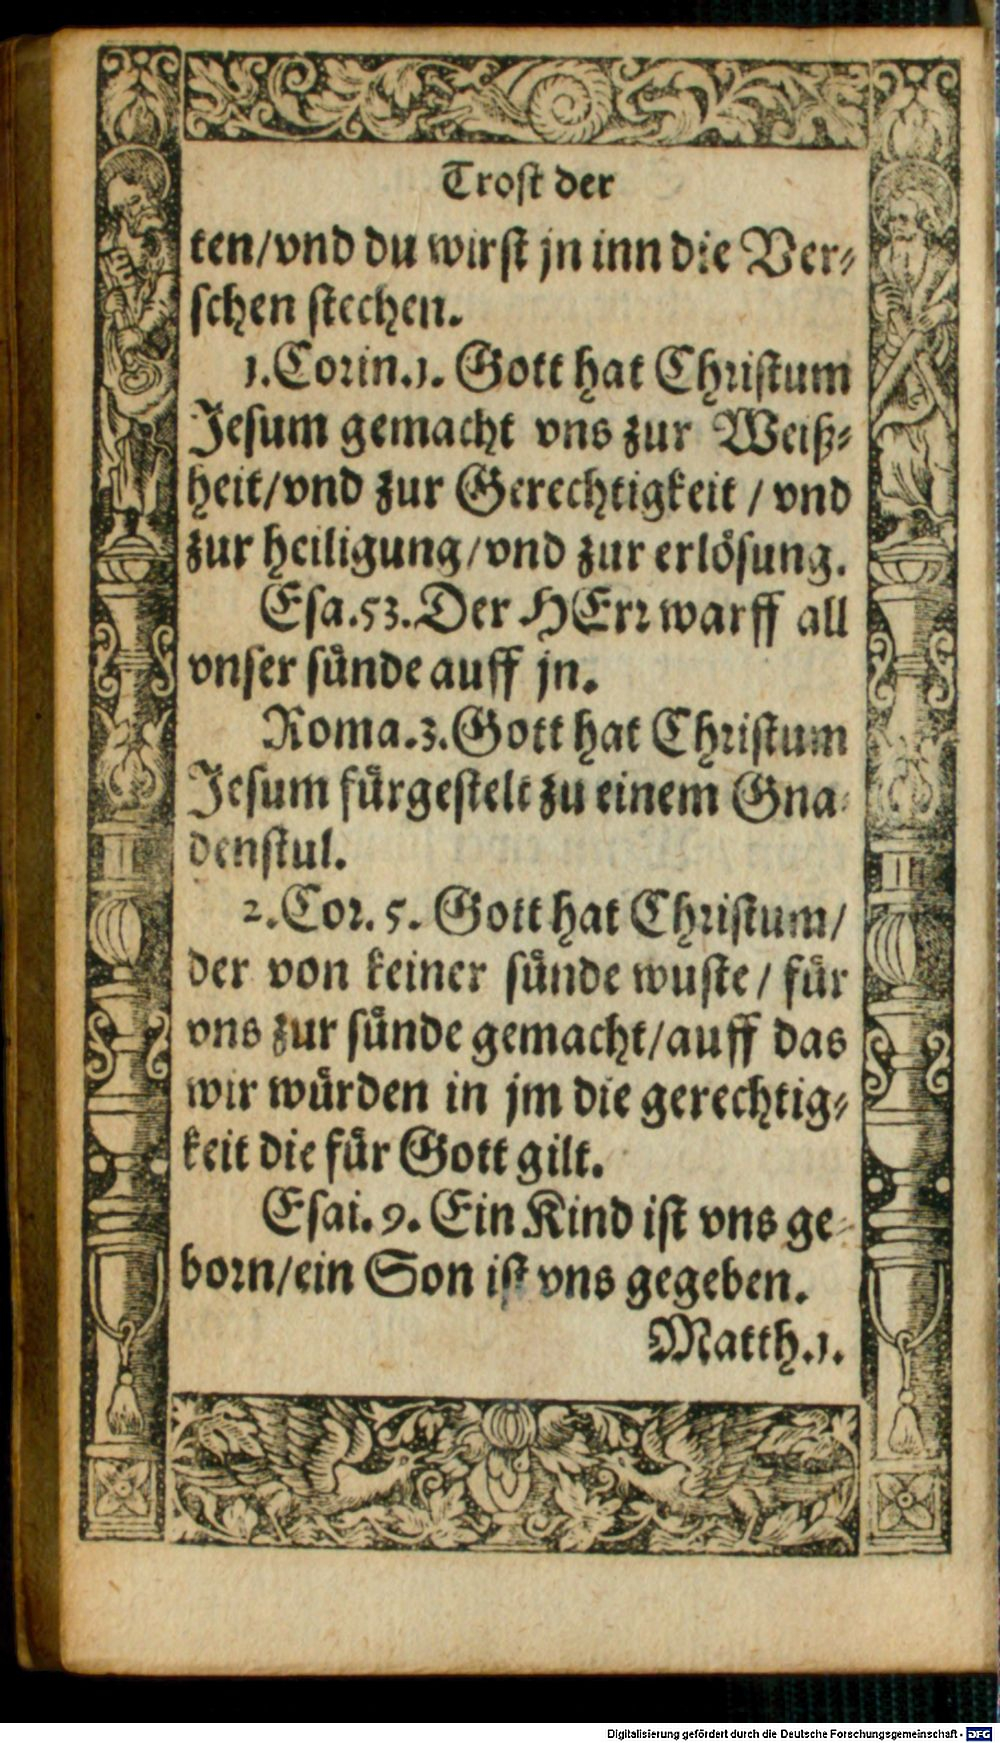 Trost der
ten/vnd du wirst jn inn die Ver⸗
schen stechen.
1.Corin.1. Gott hat Christum
Jesum gemacht vns zur Weiß⸗
heit/vnd zur Gerechtigkeit / vnd
zur heiligung/vnd zur erlösung.
Esa.53.Der HErr warff all
vnser sünde auff jn.
Roma.3.Gott hat Christum
Jesum fürgestelt zu einem Gna⸗
denstul.
2.Cor. 5. Gott hat Christum/
der von keiner sünde wuste / für
vns zur sünde gemacht/auff das
wir würden in jm die gerechtig⸗
keit die für Gott gilt.
Esai. 9. Ein Kind ist vns ge⸗
born/ein Son ist vns gegeben.
Matth.1.
Digitalisierung gefördert durch die Deutsche Forschungsgemeinschaft - DFG